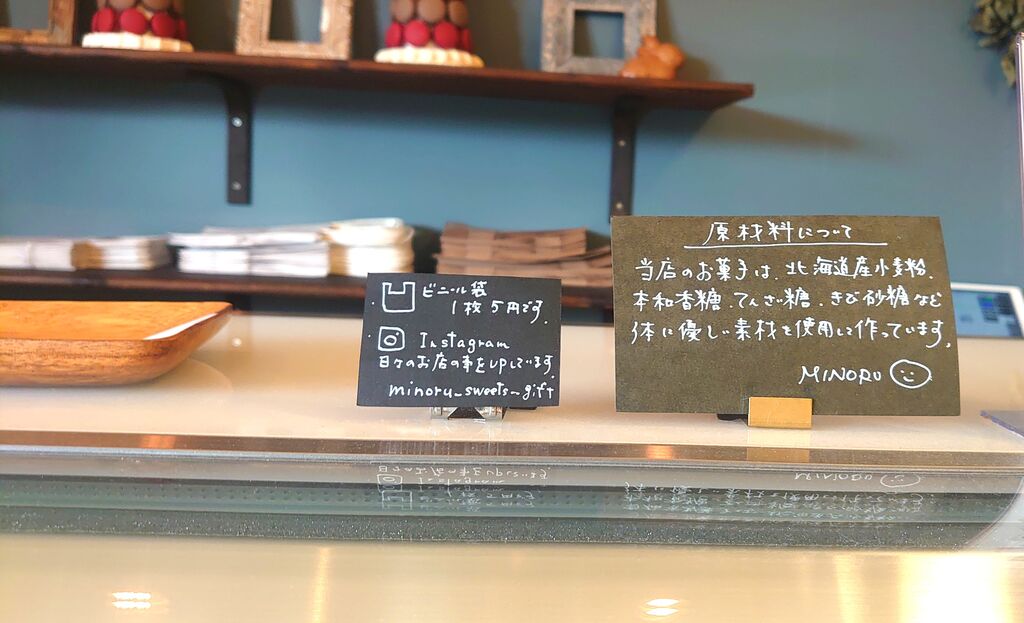 ビニール袋
1枚 5円です.
Instagram
日々のお店の事をupしています.
minoru_sweets_gift
原材料について
当店のお菓子は、北海道産小麦粉、
本和香糖、てんさい糖、きび砂糖など
体に優しい素材を使用して作っています。
MINORU